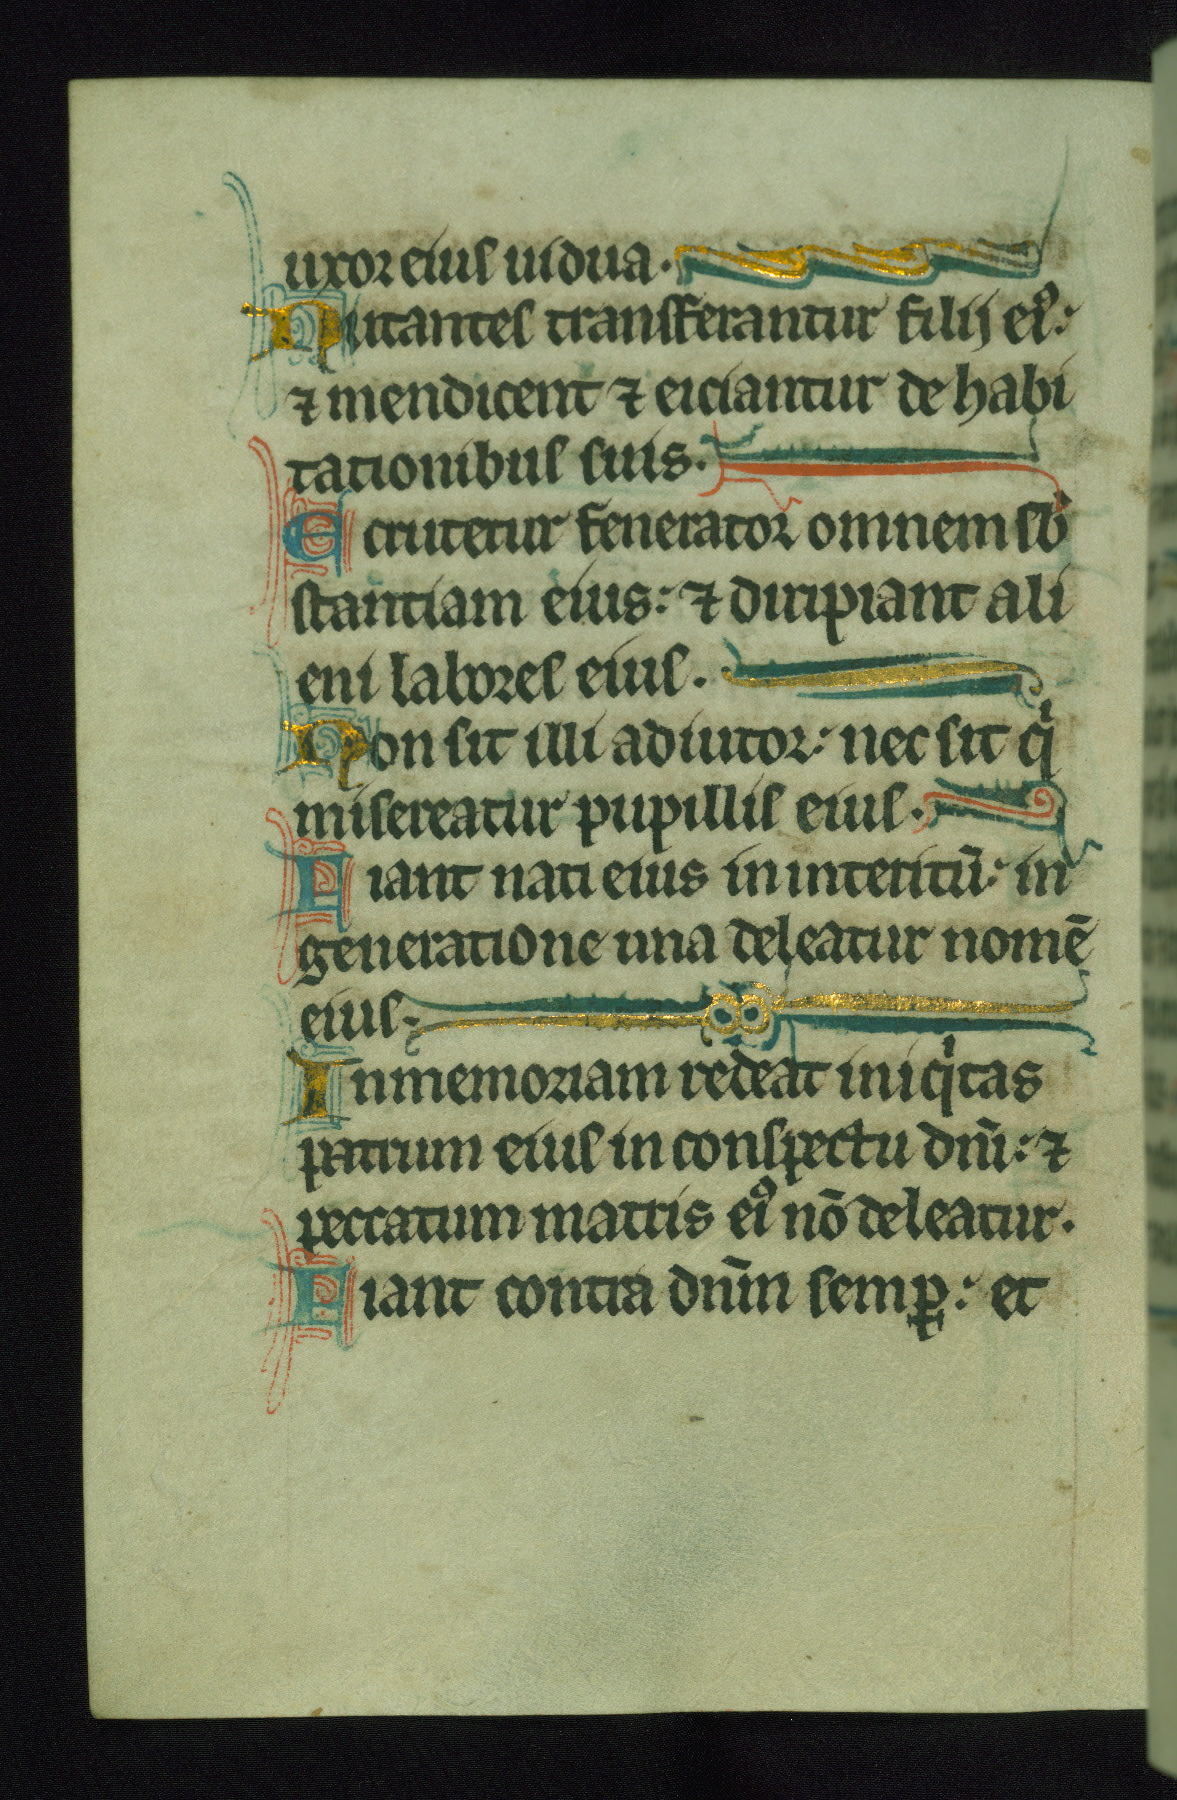 uxor eius uidua.
Nutantes transferantur filij ei⁹:
⁊ mendicent ⁊ eiciantur de habi
tationibus suis.
Scrutetur fenerator omnem sb̾
stantiam eius: ⁊ diripiant ali
eni labores eius.
Non sit illi adiutor: nec sit qͥ
misereatur pupillis eius.
Fiant nati eius in interitū: in
generatione una deleatur nomē
eius.
In memoriam redeat iniqͥtas
patrum eius in conspectu dn̄i: ⁊
peccatum matris ei⁹ nō deleatur.
Fiant contra dn̄m semꝑ: et